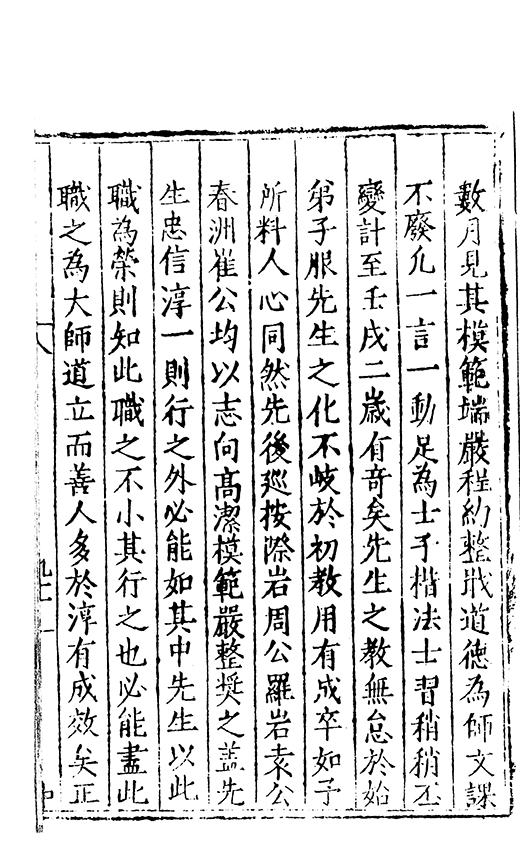 數月見其模範端嚴程約整戢道德為師文課
不廢凢一言一動足為士子楷法士習稍稍丕
變計至壬戌二歲有竒矣先生之教無怠於始
弟子服先生之化不岐於初教用有成卒如予
所料人心同然先後廵按際岩周公羅岩袁公
春洲崔公均以志向高潔模範嚴整奬之盖先
生忠信淳一則行之外必能如其中先生以此
職為榮則知此職之不小其行之也必能盡此
職之為大師道立而善人多於淳有成效矣正